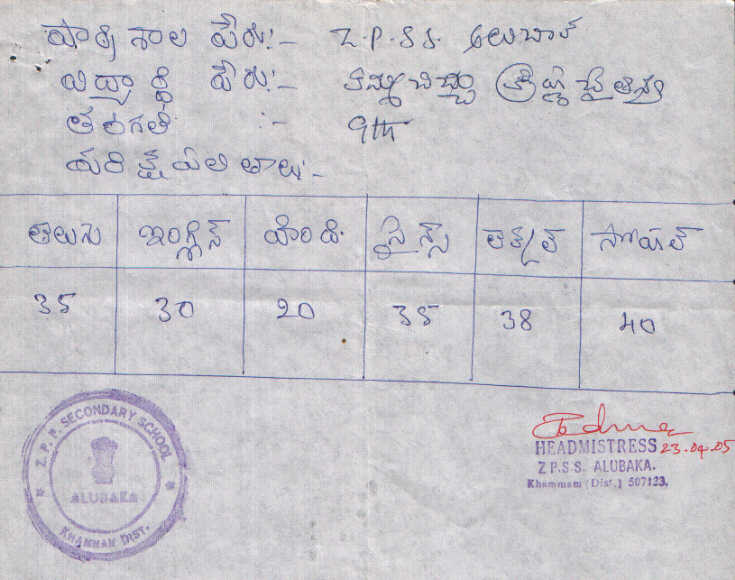 పాఠశాల పేరు:- Z.P.S.S. ఆలుబాక
విద్యార్థి పేరు:- కమ్మచిచ్చు కృష్ణ చైతన్య
తరగతి :- 9th
పరీక్ష ఫలితాలు:-
తెలుగు ఇంగ్లీష్ హింది సైన్స్ లెక్కల్ సోషల్
35 30 20 35 38 40
Z.P.P. SECONDARY SCHOOL
ALUBAKA
KHAMMAM DIST.
HEADMISTRESS 23.04.05
Z P.S.S. ALUBAKA.
Khammam (Dist.) 507123.